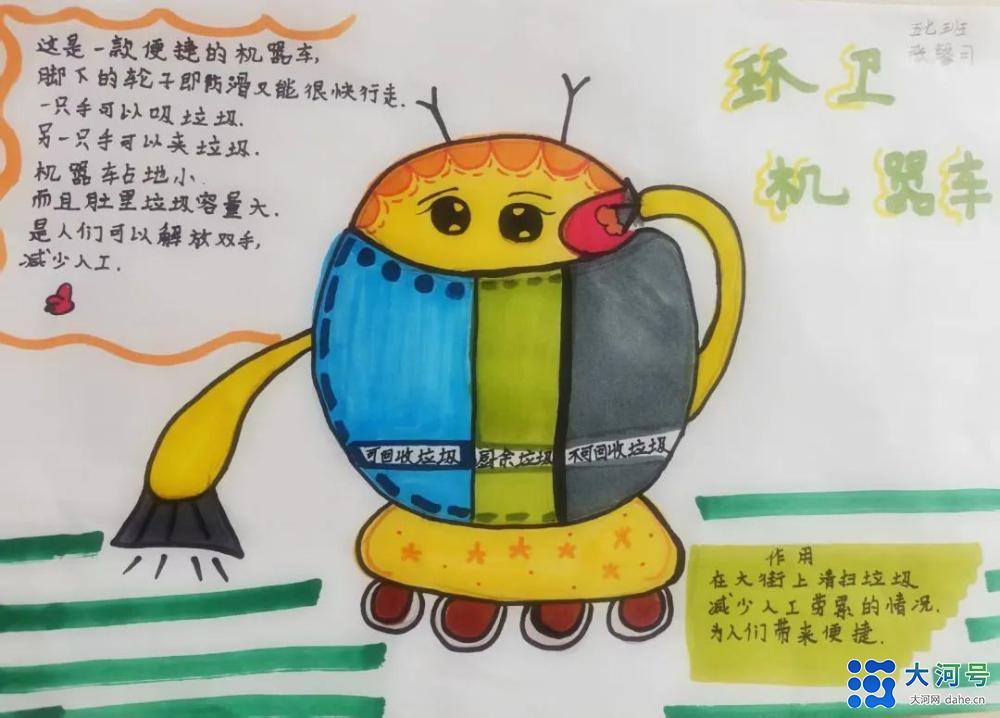 这是一款便捷的机器车,
脚下的轮子即防滑又能很快行走.
一只手可以吸垃圾.
另一只手可以夹垃圾.
机器车占地小.
而且肚里垃圾容量大.
是人们可以解放双手,
减少人工.
五七班
环卫
机器车
可回收垃圾
厨余垃圾
不可回收垃圾
作用
在大街上清扫垃圾
减少人工劳累的情况.
为人们带来便捷.
大河号
大河网 dahe.cn